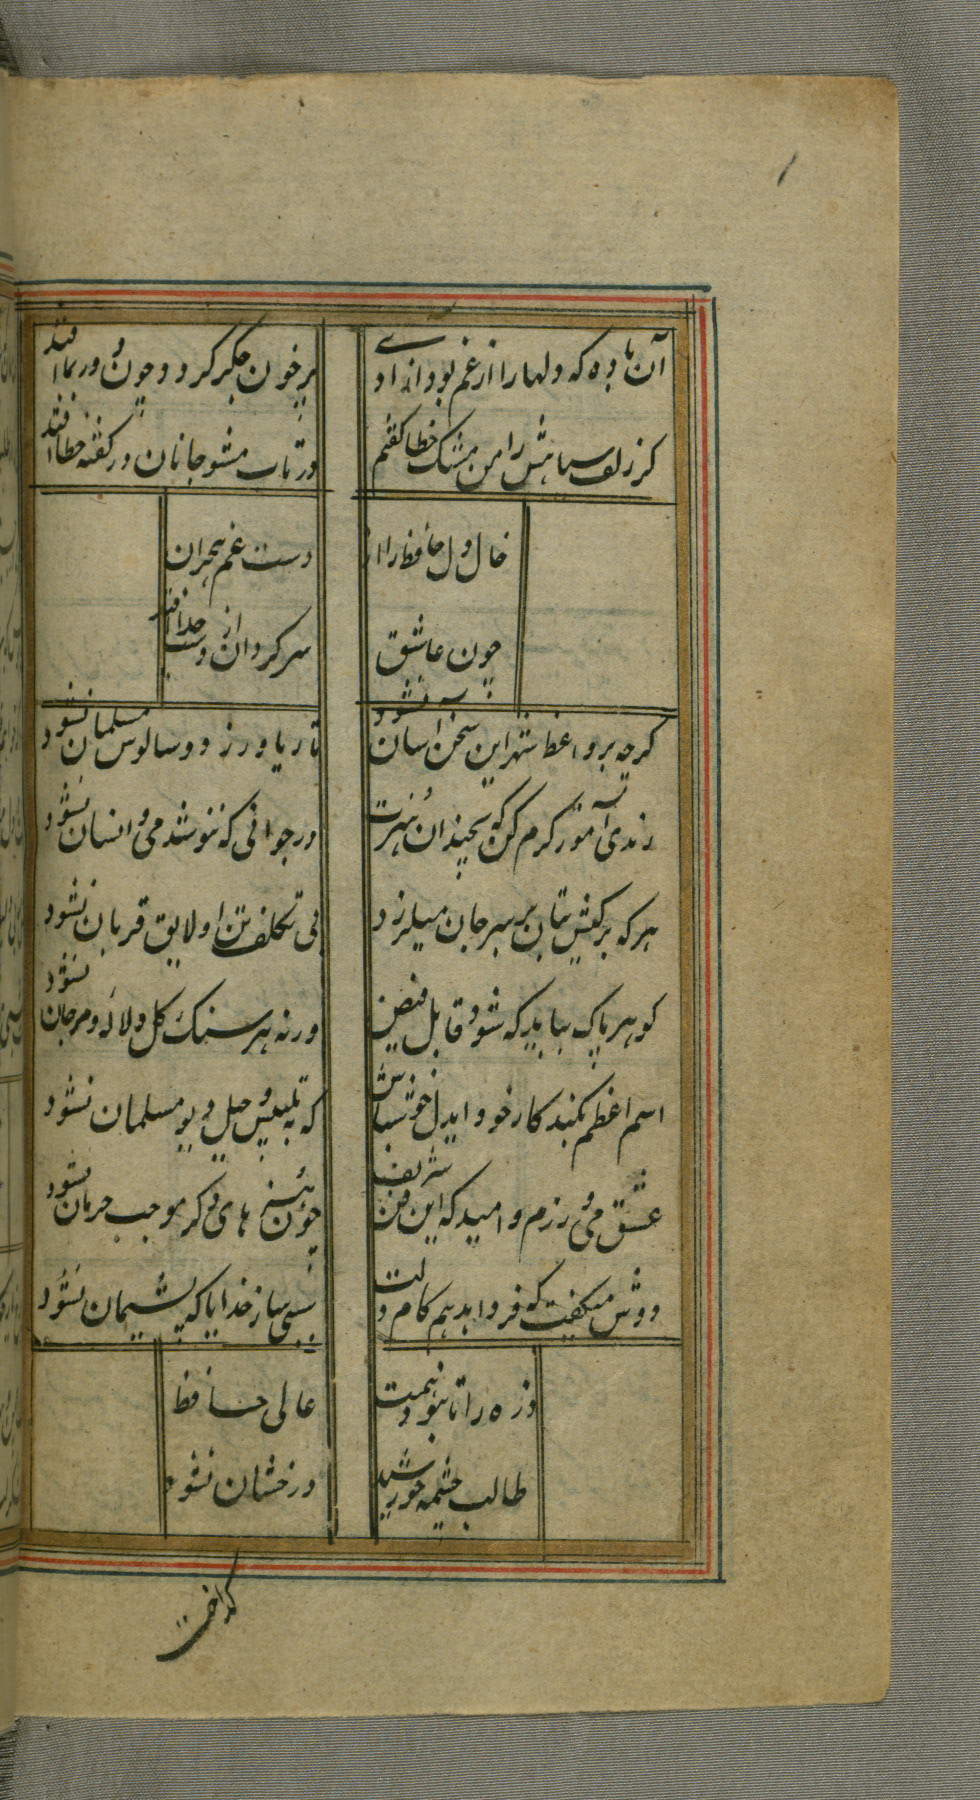 آن باده که دلها را از غم بود آزادی
پر خون جگر گردد چون دور بما افتد
گر زلف سیاهش را من مشک خطا گفتم
در تاب مشو جانان در گفته خطا افتد
حال دل حافظ را از
دست غم هجران
چون عاشق
سرگردان از دوست جدا افتد
گرچه بر واعظ شهر این سخن آسان نشود
تا ریا ورزد و سالوس مسلمان نشود
رندی آموز و کرم کن که نچندان هنرست
در جوانی که ننوشد می و انسان نشود
هر که بر کیش بتان بر سر جان میلرزد
بی تکلف تن او لایق قربان نشود
گوهر پاک بباید که شود قابل فیض
ورنه هر سنک و کل لاله و مرجان نشود
اسم اعظم بکند کار خود ایدل خوش باش
که به تلبیس و حیل دیو مسلمان نشود
عشق می ورزم و امید که این فن شریف
چون هنرهای دگر موجب حرمان نشود
دوش میکفت که فردا بدهم کام دلت
سببی ساز خدایا که پشیمان نشود
ذره را تا نبود همت
عالی حافظ
طالب چشمه خورشید
درخشان نشود